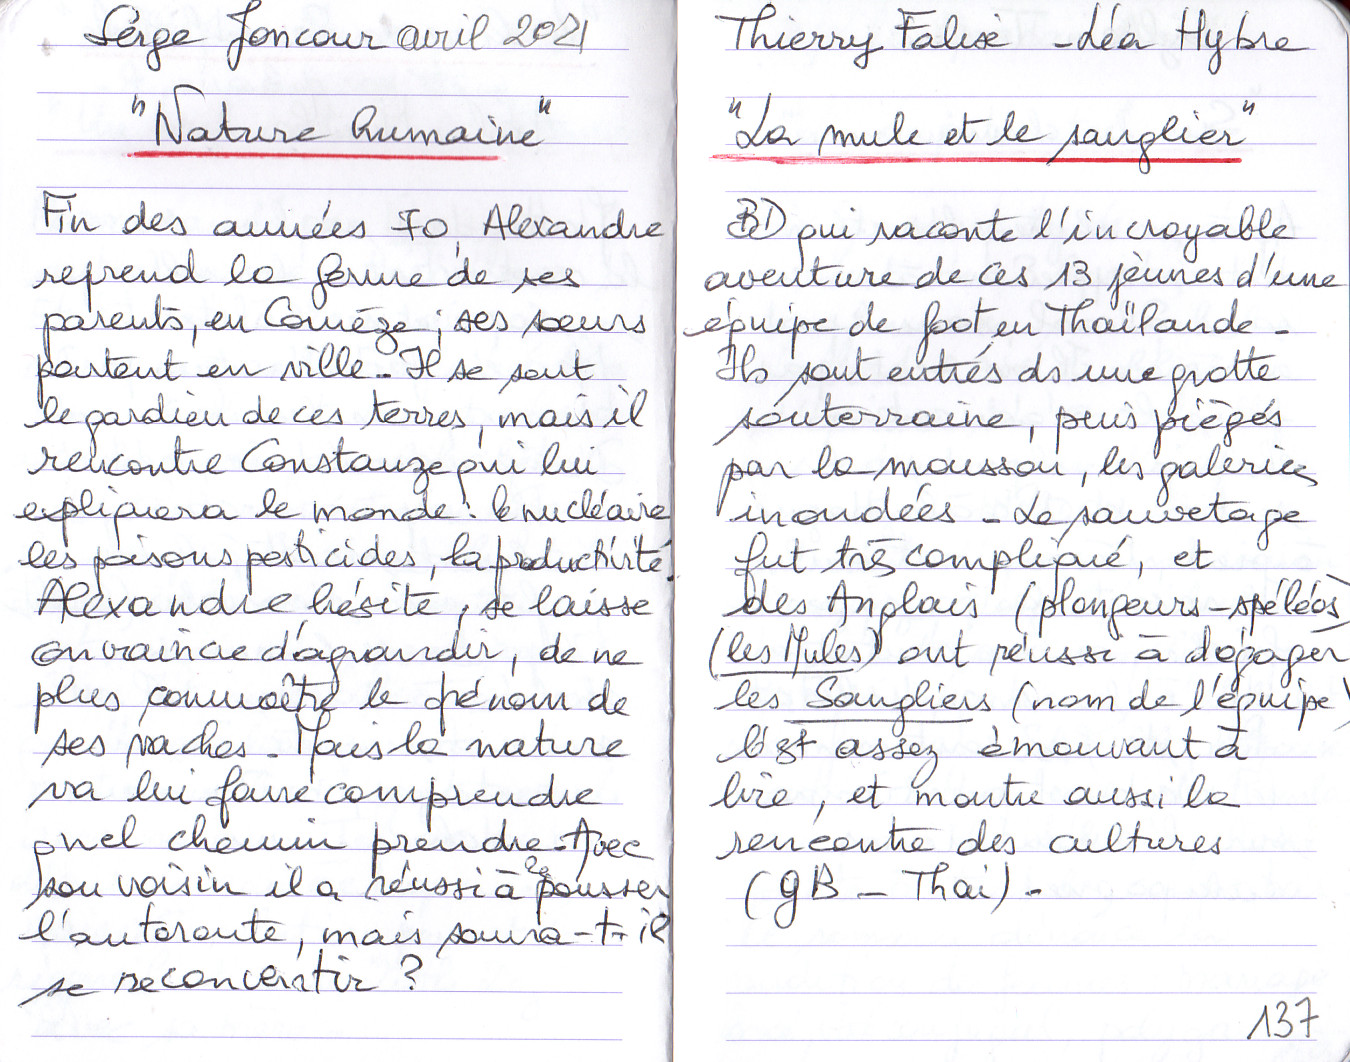 Serge Joncour avril 2021
"Nature humaine"
Fin des années 70, Alexandre
reprend la ferme de ses
parents, en Corrèze ; ses sœurs
partent en ville. Il se sent
le gardien de ces terres, mais il
rencontre Constanze qui lui
expliquera le monde : le nucléaire
les poisons pesticides, la productivité.
Alexandre hésite, se laisse
convaincre d'agrandir, de ne
plus connaître le prénom de
ses vaches. Mais la nature
va lui faire comprendre
quel chemin prendre. Avec
son voisin il a réussi à repousser
l'autoroute, mais saura-t-il
se reconvertir ?
Thierry Falise - Léa Hybre
"La mule et le sanglier"
BD qui raconte l'incroyable
aventure de ces 13 jeunes d'une
équipe de foot en Thaïlande -
Ils sont entrés ds une grotte
souterraine, puis piégés
par la mousson, les galeries
inondées - Le sauvetage
fut très compliqué, et
des Anglais (plongeurs-spéléos)
(les Mules) ont réussi à dégager
les Sangliers (nom de l'équipe)
C'est assez émouvant à
lire, et montre aussi la
rencontre des cultures
(GB - Thaï) -
137